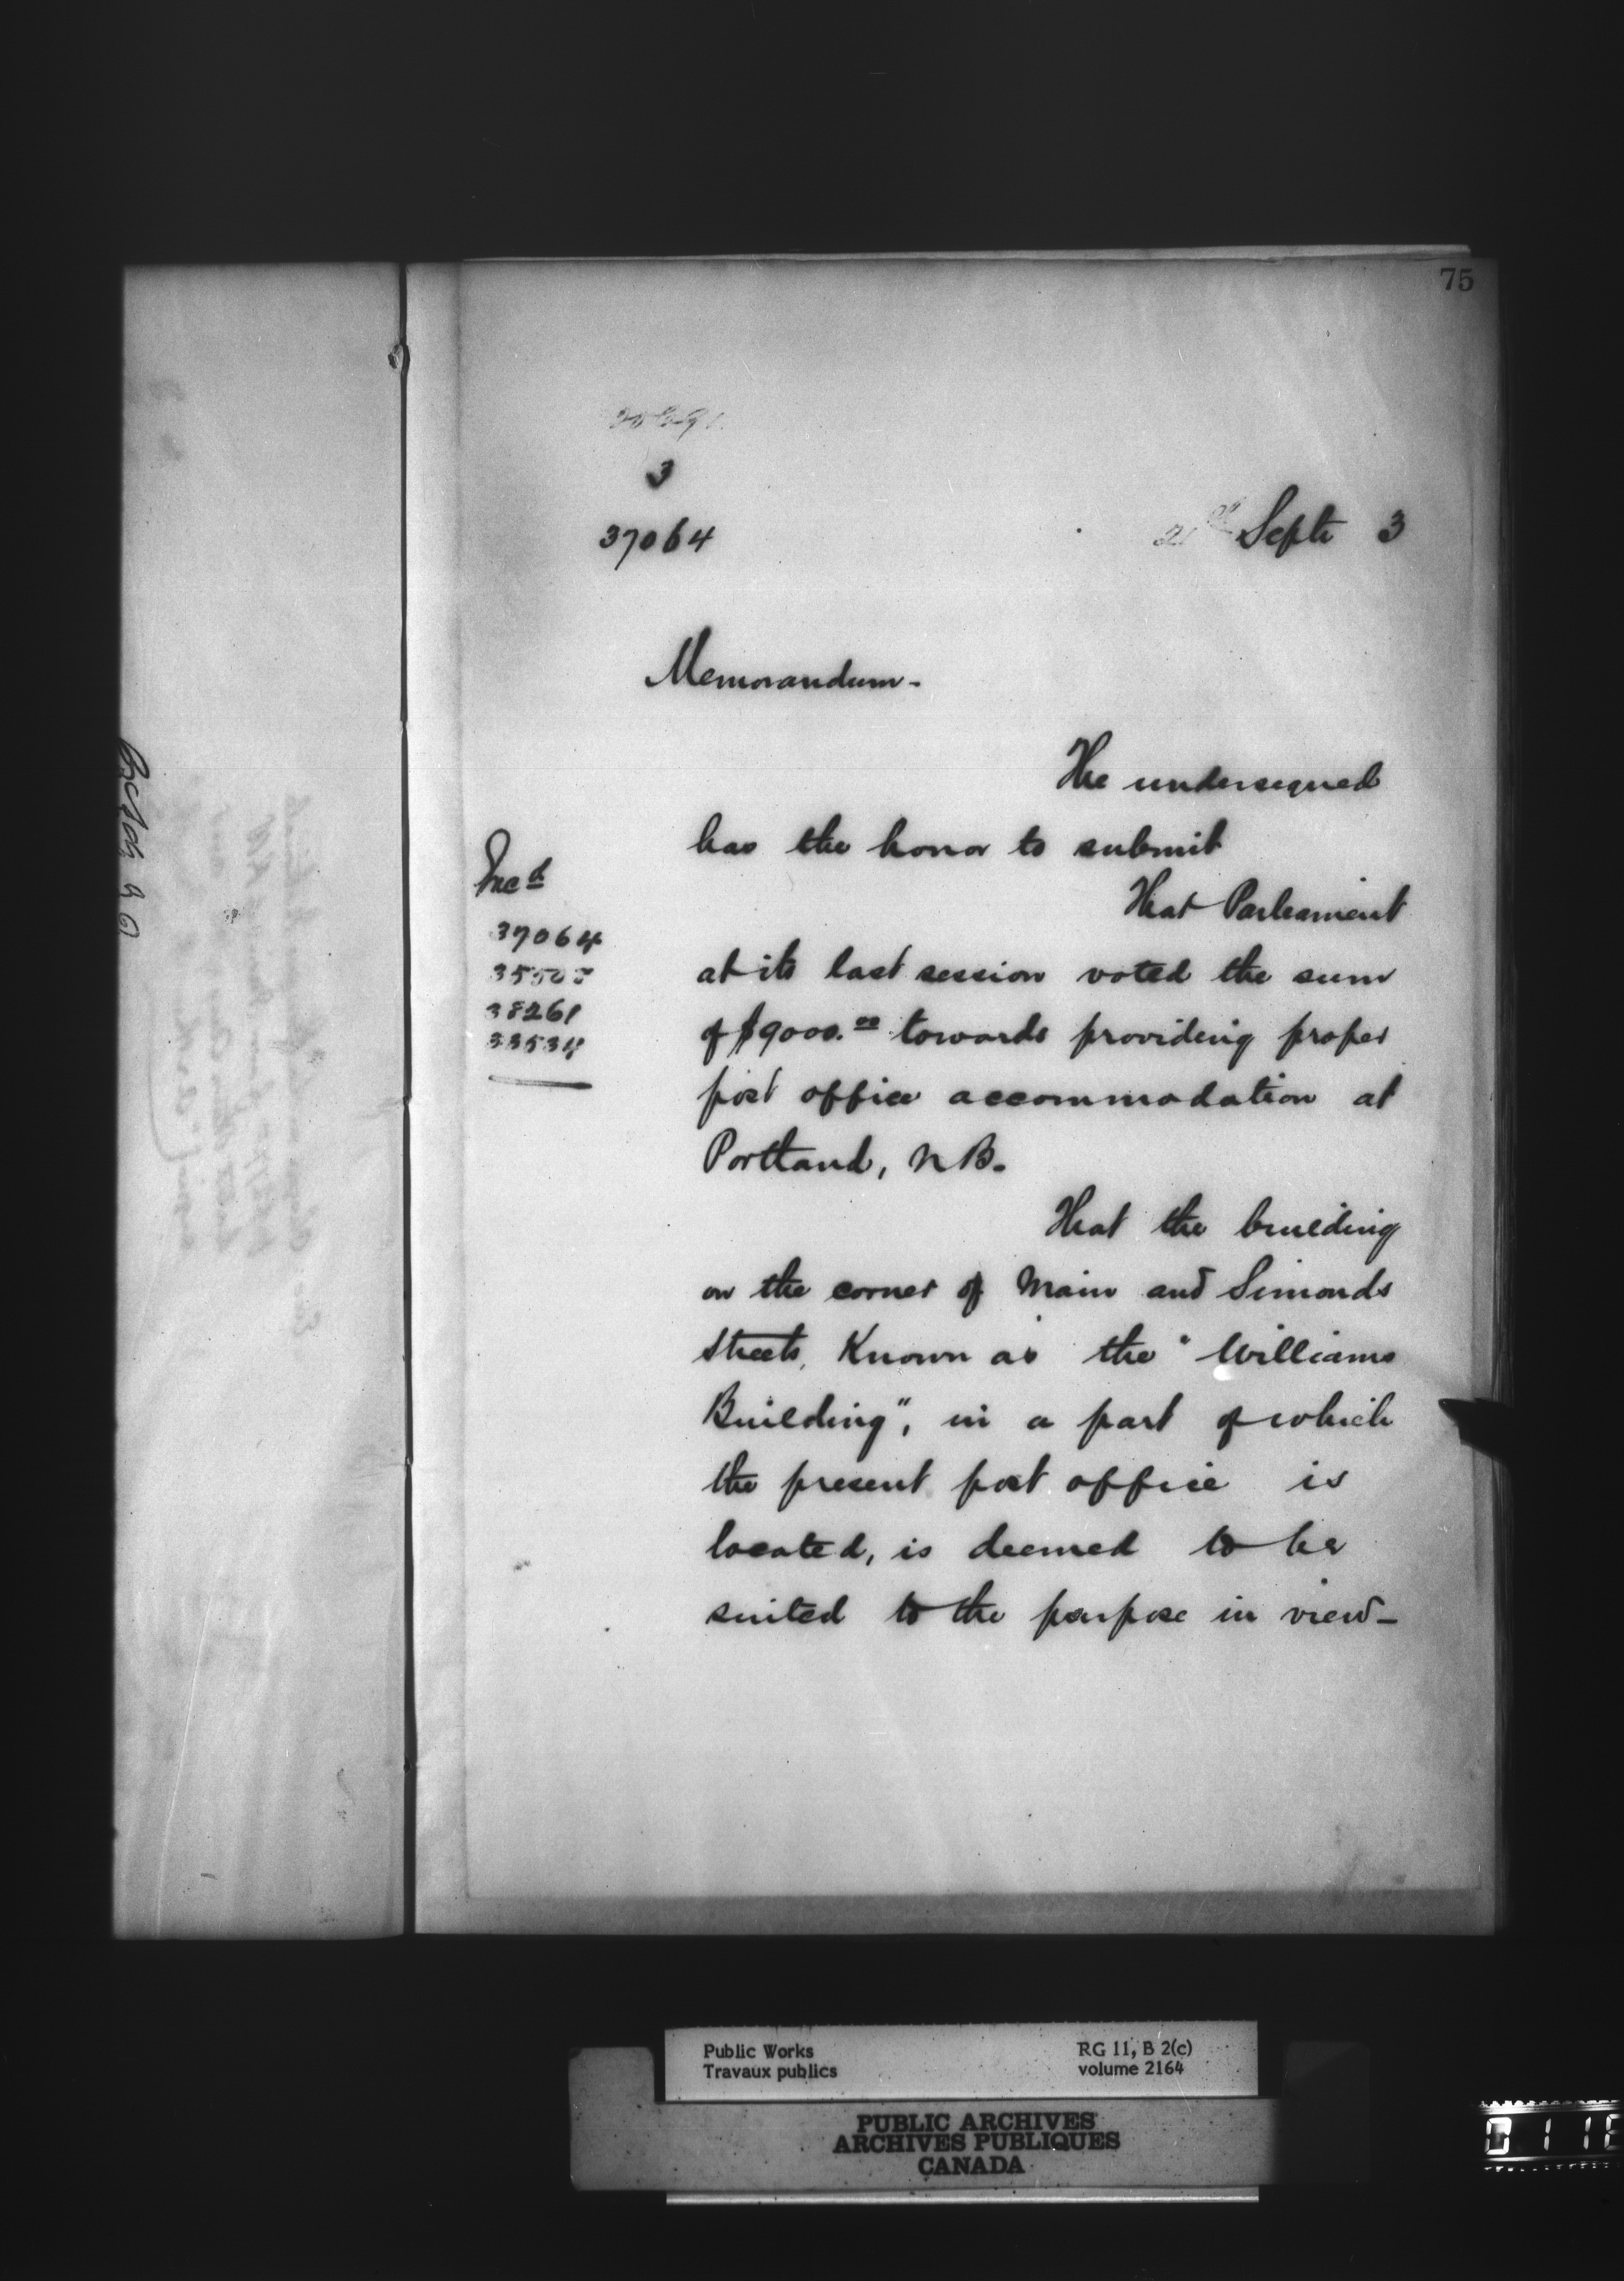 75
3
37064
Septr 3
Memorandum-
The undersigned
has the honor to submit
That Parliament
at its last session voted the sum
of $9000.00 towards providing proper
post office accommodation at
Portland, N.B.
That the building
on the corner of Main and Simonds
Streets, Known as the "Williams
Building", in a part of which
the present post office is
located, is deemed to be
suited to the purpose in view-
Incd
37064
38261
33534
Public Works
Travaux publics
RG 11, B 2(c)
volume 2164
PUBLIC ARCHIVES
ARCHIVES PUBLIQUES
CANADA